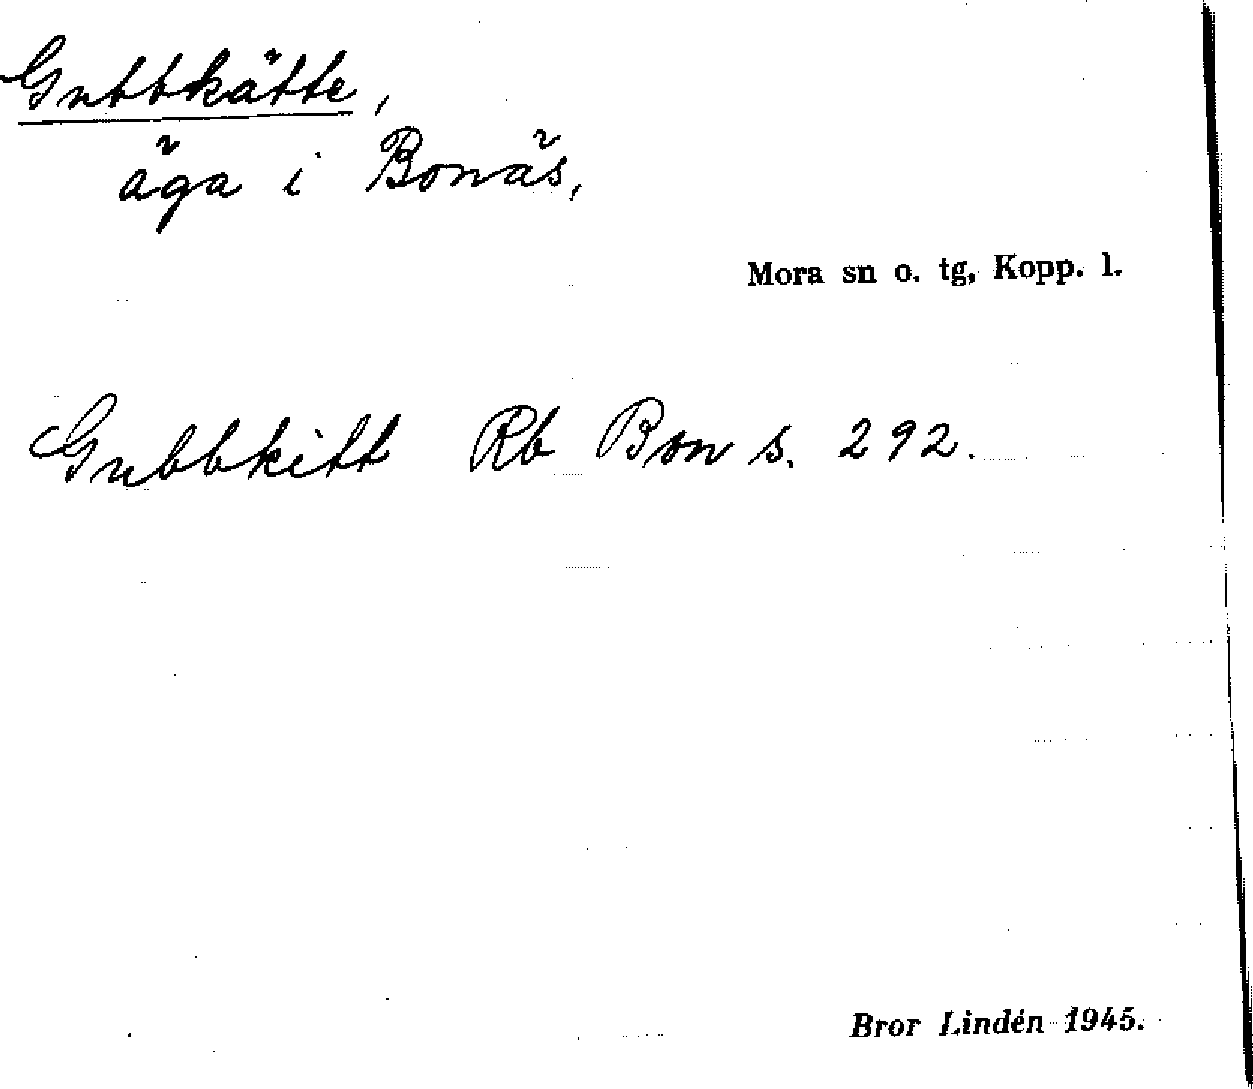 Gubbkätte,
äga i Bonäs,
Mora sn o. tg, Kopp. l.
Gubbkitt Rb Bon s. 292.
Bror Lindén 1945.